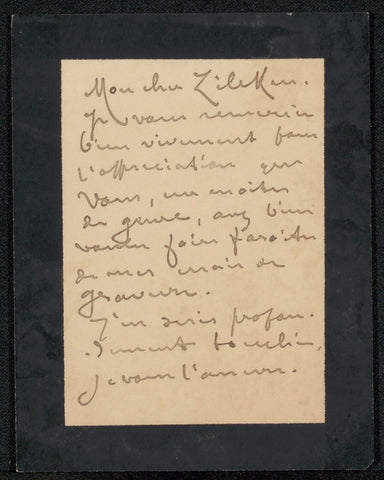 Mon cher Zilcken.
Je vous remercie
bien vivement pour
l'appreciation que
vous, un maitre
du genre, avez bien
voulu faire paraître
de mes essais de
gravure.
J'en suis profon-
dément touché,
je vous l'assure.